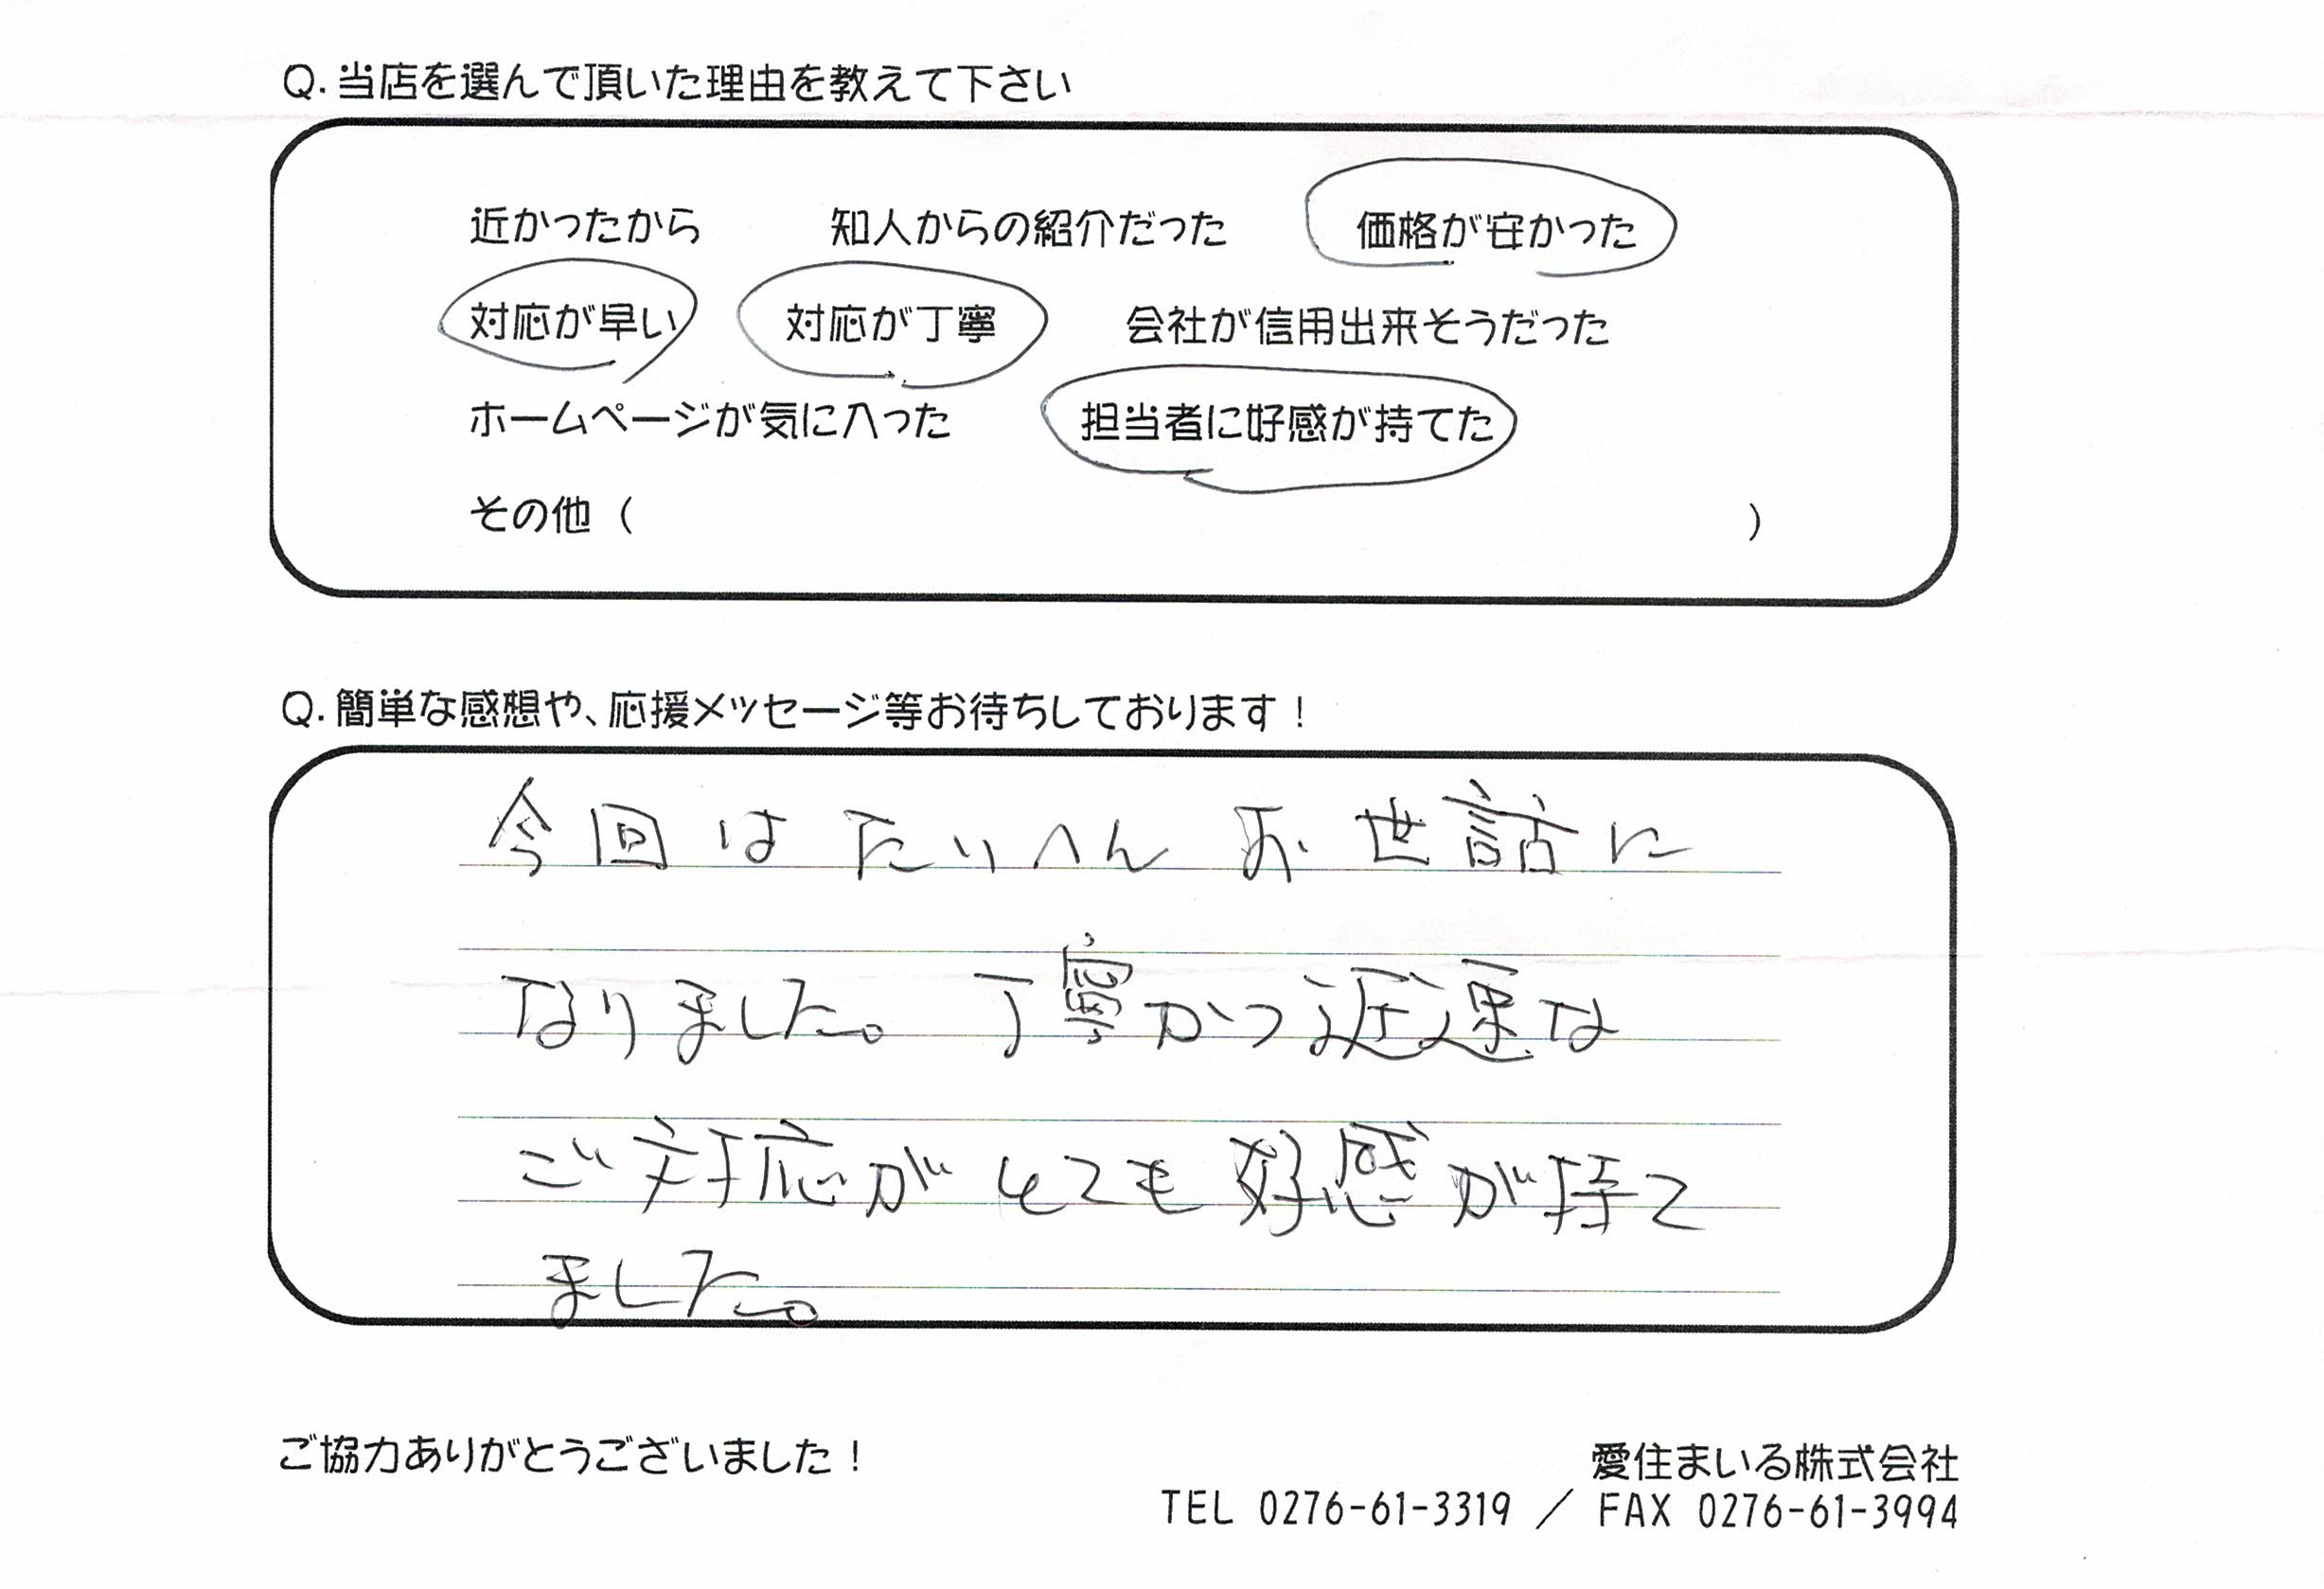 Q.当店を選んで頂いた理由を教えて下さい
近かったから 知人からの紹介だった 価格が安かった
対応が早い 対応が丁寧 会社が信用出来そうだった
ホームページが気に入った 担当者に好感が持てた
その他（ ）
Q.簡単な感想や、応援メッセージ等お待ちしております！
今回はたいへんお世話に
なりました。丁寧かつ迅速な
ご対応がとても好感が持て
ました。
ご協力ありがとうございました！
愛住まいる株式会社
TEL 0276-61-3319 ／ FAX 0276-61-3994